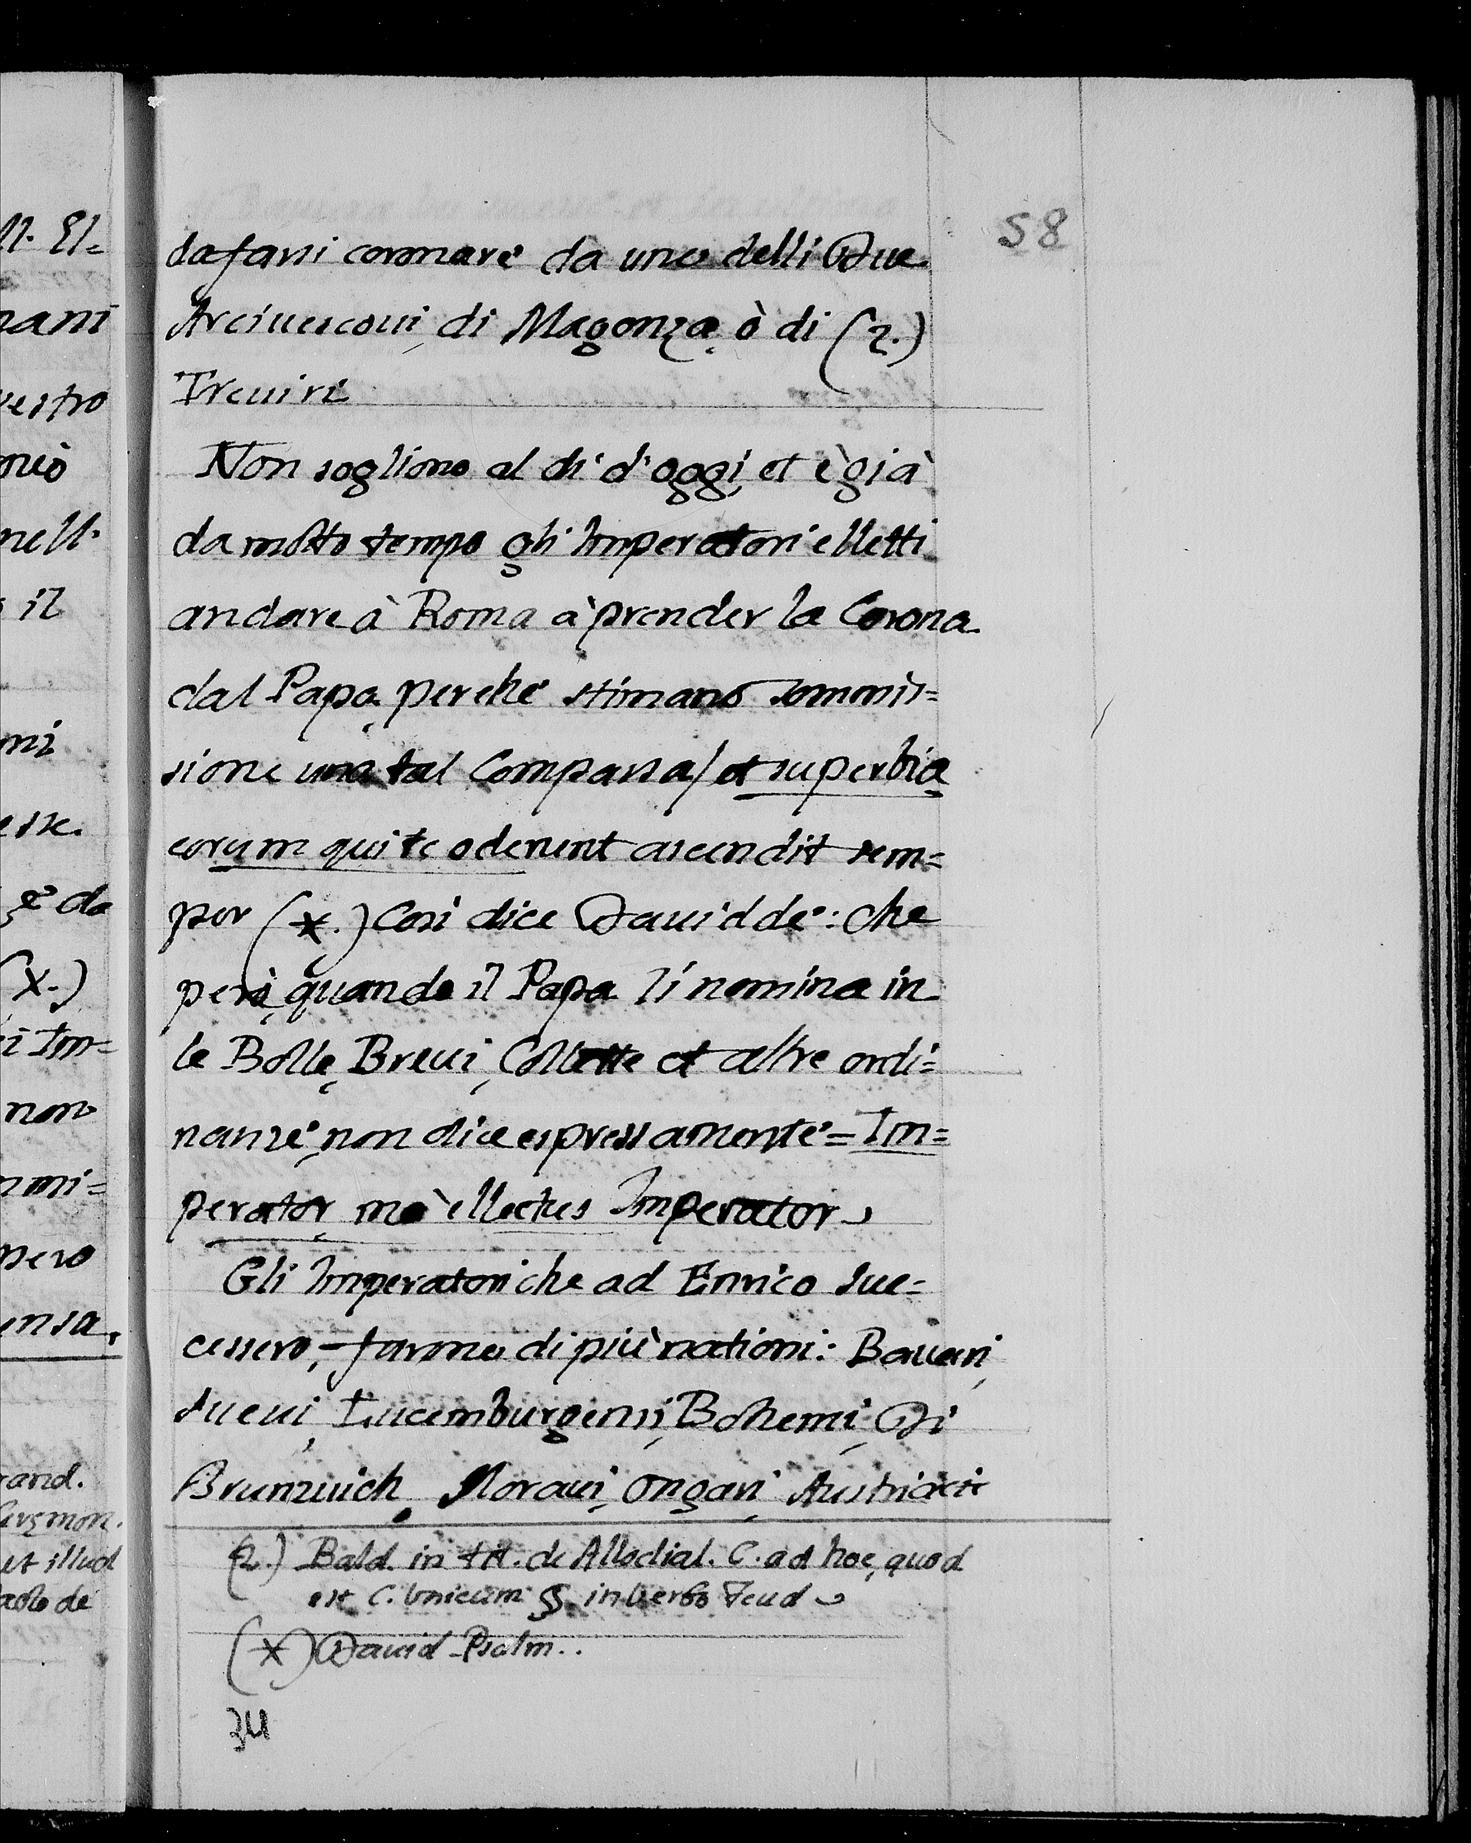 58
da farsi coronare da uno delli Due
Arciuescoui di Magonza ò di (2.)
Treuiri
Non sogliono al di d'oggi, et è già
da molto tempo gl' Imperatori elletti
andare à Roma à prender la Corona
dal Papa, perche stimano sommis=
sione una tal Comparsa / et superbia
eorum qui te oderunt ascendit sem=
per (X.) Cosi dice Dauidde: che
però, quando il Papa li nomina in
le Bolle, Breui, Collette et altre ordi=
nanze, non dice espressamente = Im=
perator, mà ellectus Imperator
Gli Imperatori che ad Enrico suc=
cessero, farono di più nationi: Bauari,
Sueui, Lucemburgensi, Bohemi, Di
Brunzuich, Moraui, Ongari, Austriaci
(2.) Bald. in tit. de Allodial. C. ad hoc, quod
est C. Unicum §. in uerbo Feud
(X) Dauid Psalm..